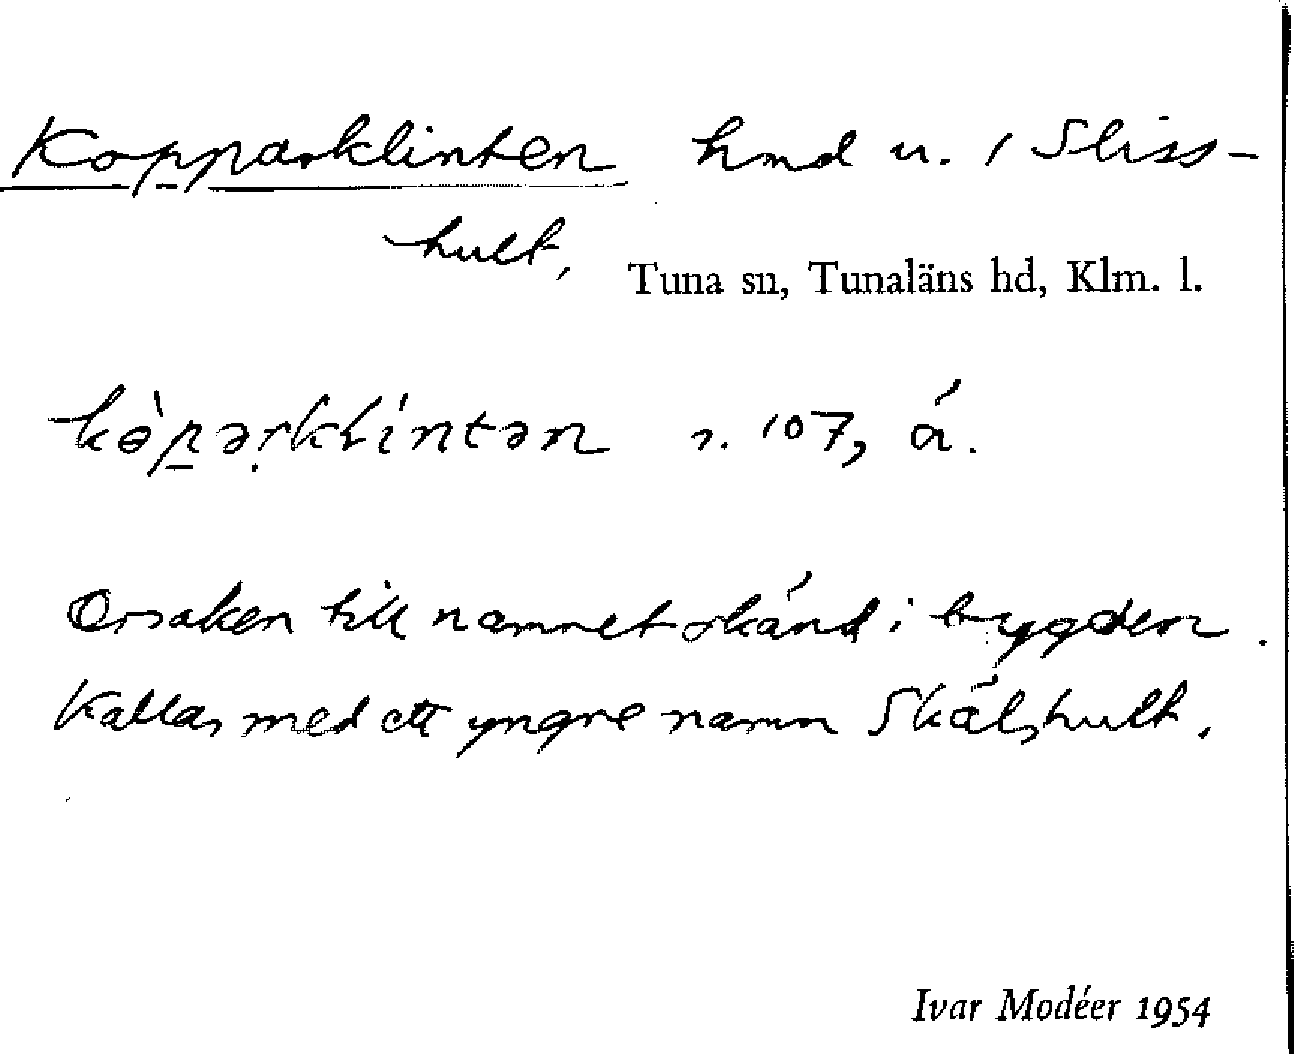 Kopparklinten hmd u. 1 Sliss-
hult,
Tuna sn, Tunaläns hd, Klm. l.
kɵ̀p̲ərklíntən r. 107, á.
Orsaken till namnet okänd i bygden.
Kallas med ett yngre namn Skälshult.
Ivar Modéer 1954